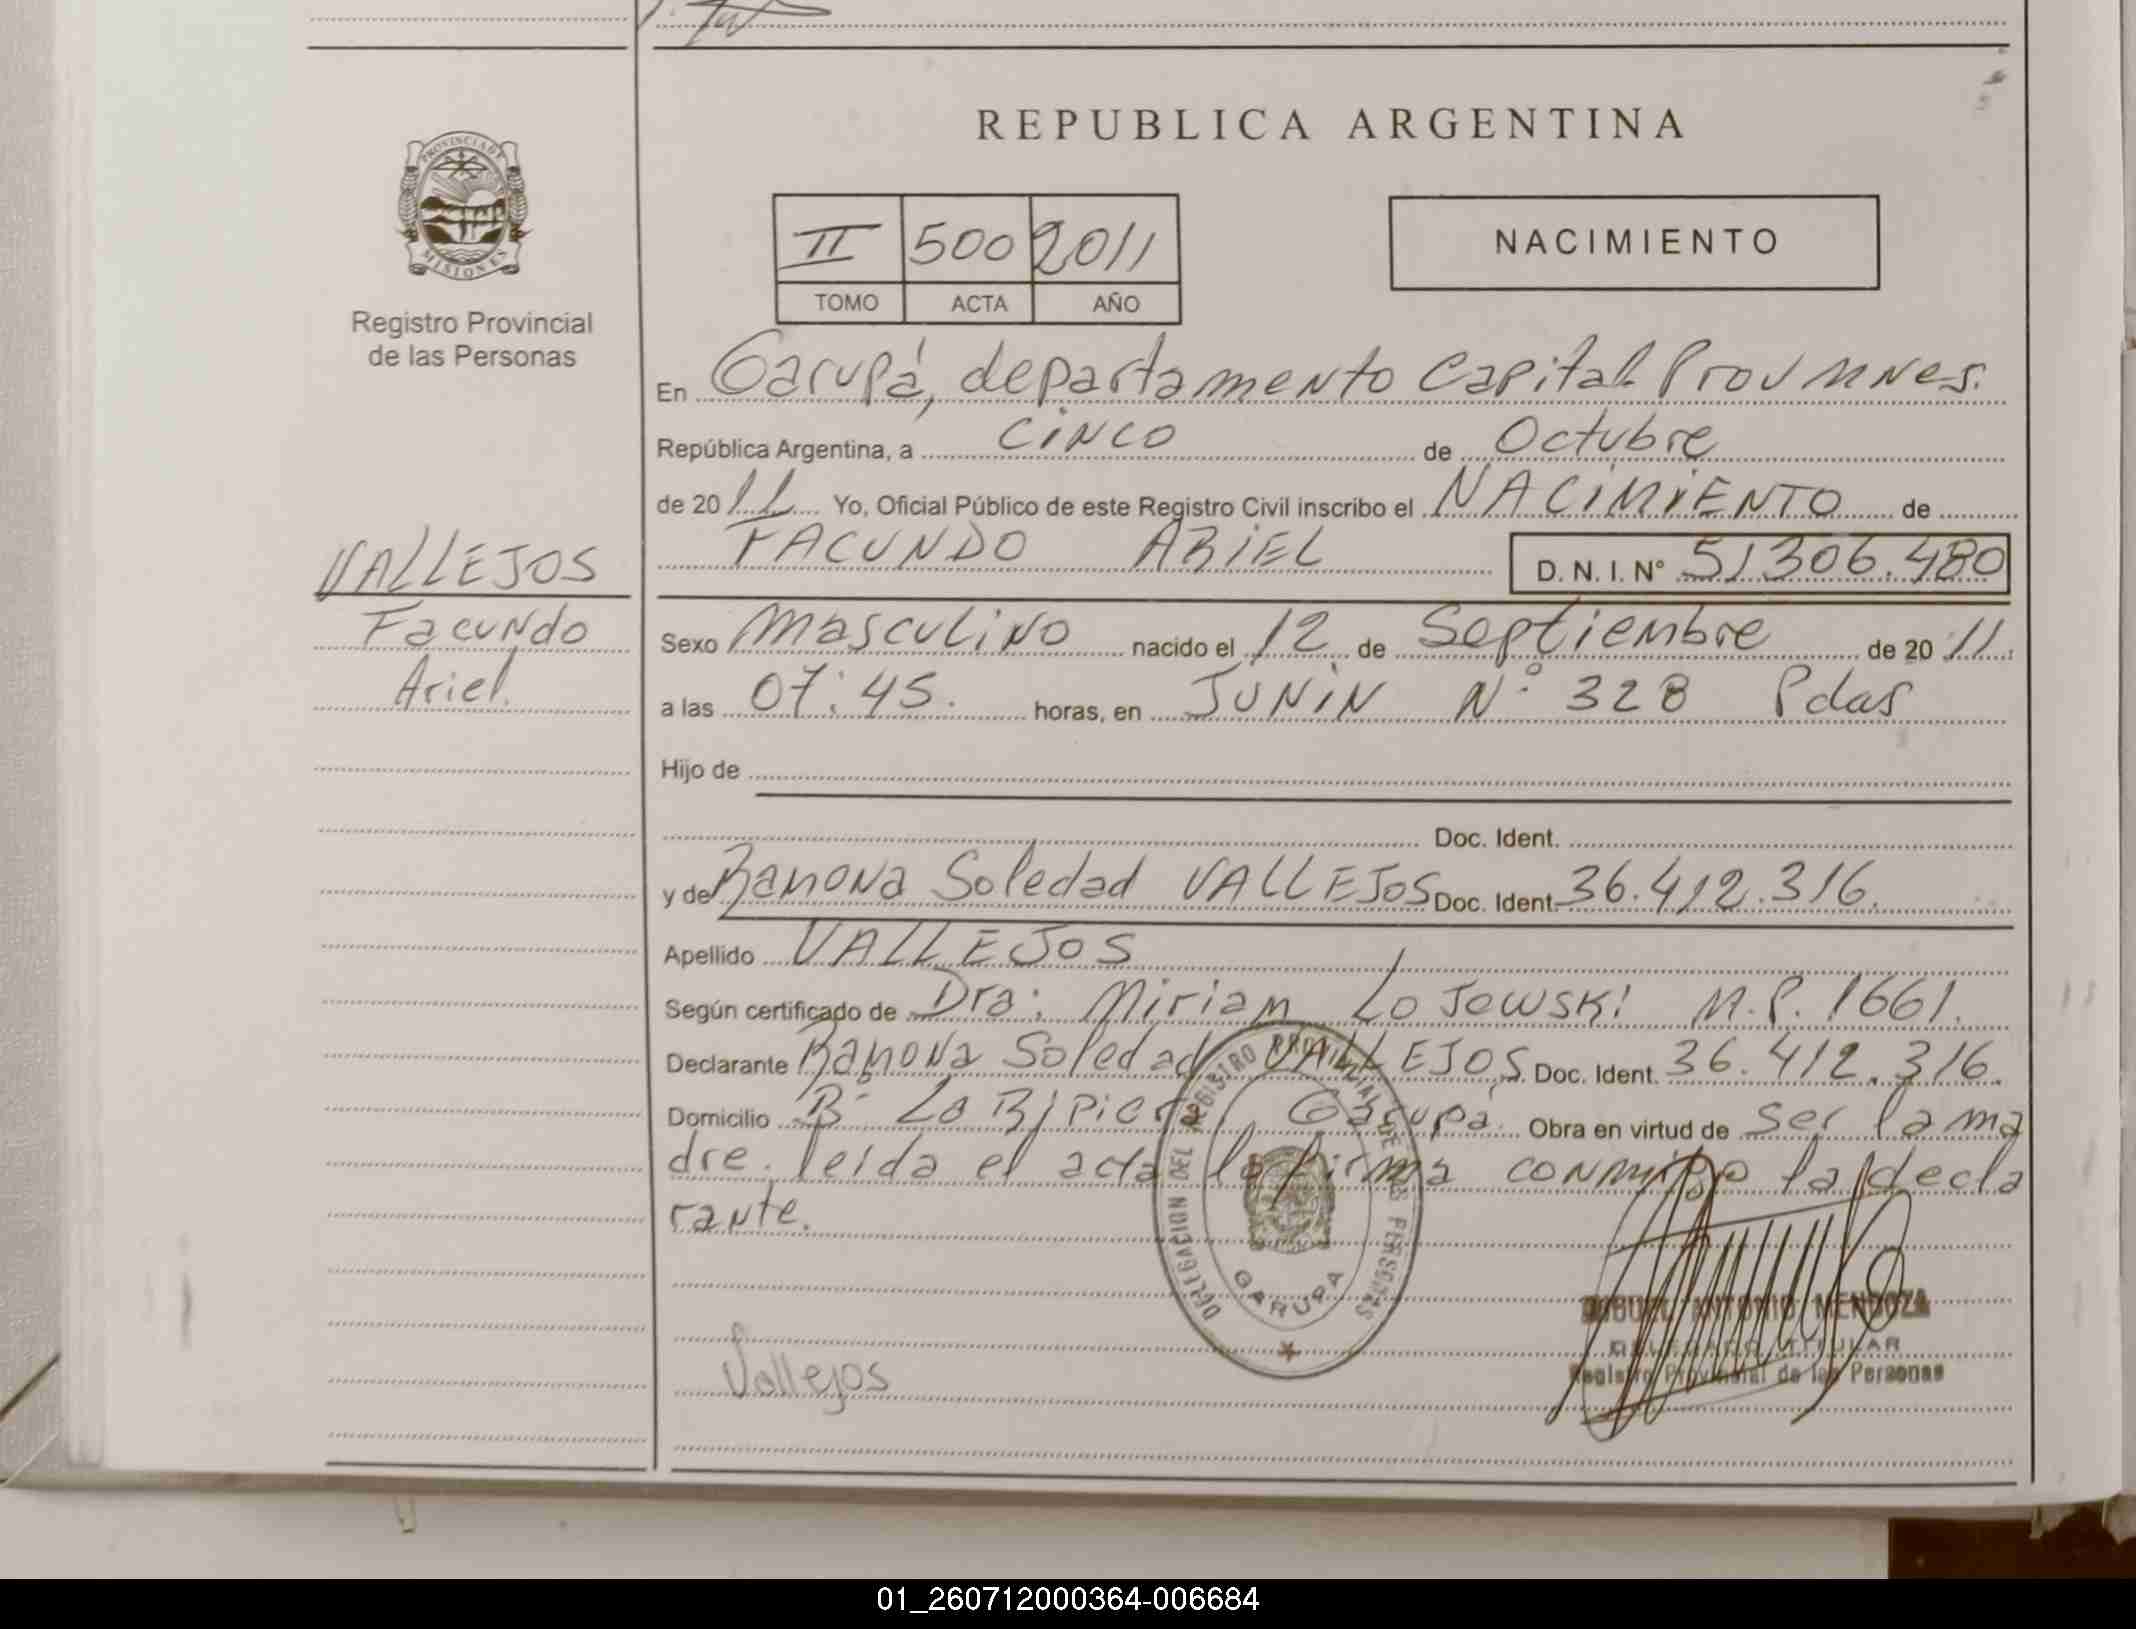 PROVINCIA DE
MISIONES
Registro Provincial
de las Personas
VALLEJOS
Facundo
Ariel.
REPUBLICA ARGENTINA
II 500 2011
TOMO ACTA AÑO
NACIMIENTO
En Garupá, departamento Capital Prov Mnes.
República Argentina, a cinco de Octubre
de 2011 Yo, Oficial Público de este Registro Civil inscribo el NACIMIENTO de
FACUNDO ARIEL D. N. I. Nº 51306.480
Sexo masculino nacido el 12 de Septiembre de 2011
a las 07:45. horas, en JUNIN Nº 328 Pdas
Hijo de
Doc. Ident.
y de Ramona Soledad VALLEJOS Doc. Ident. 36.412.316.
Apellido VALLEJOS
Según certificado de Dra: Miriam Lojewski M.P. 1661.
Declarante Ramona Soledad VALLEJOS Doc. Ident. 36.412.316.
Domicilio Bº Garupá. Obra en virtud de ser la ma
dre. leida el acta la firma conmigo la decla
rante.
DELEGACION DEL REGISTRO PROVINCIAL DE LAS PERSONAS
GARUPA
ANTONIO MENDOZA
DELEGADO TITULAR
Registro Provincial de las Personas
Vallejos
01_260712000364-006684